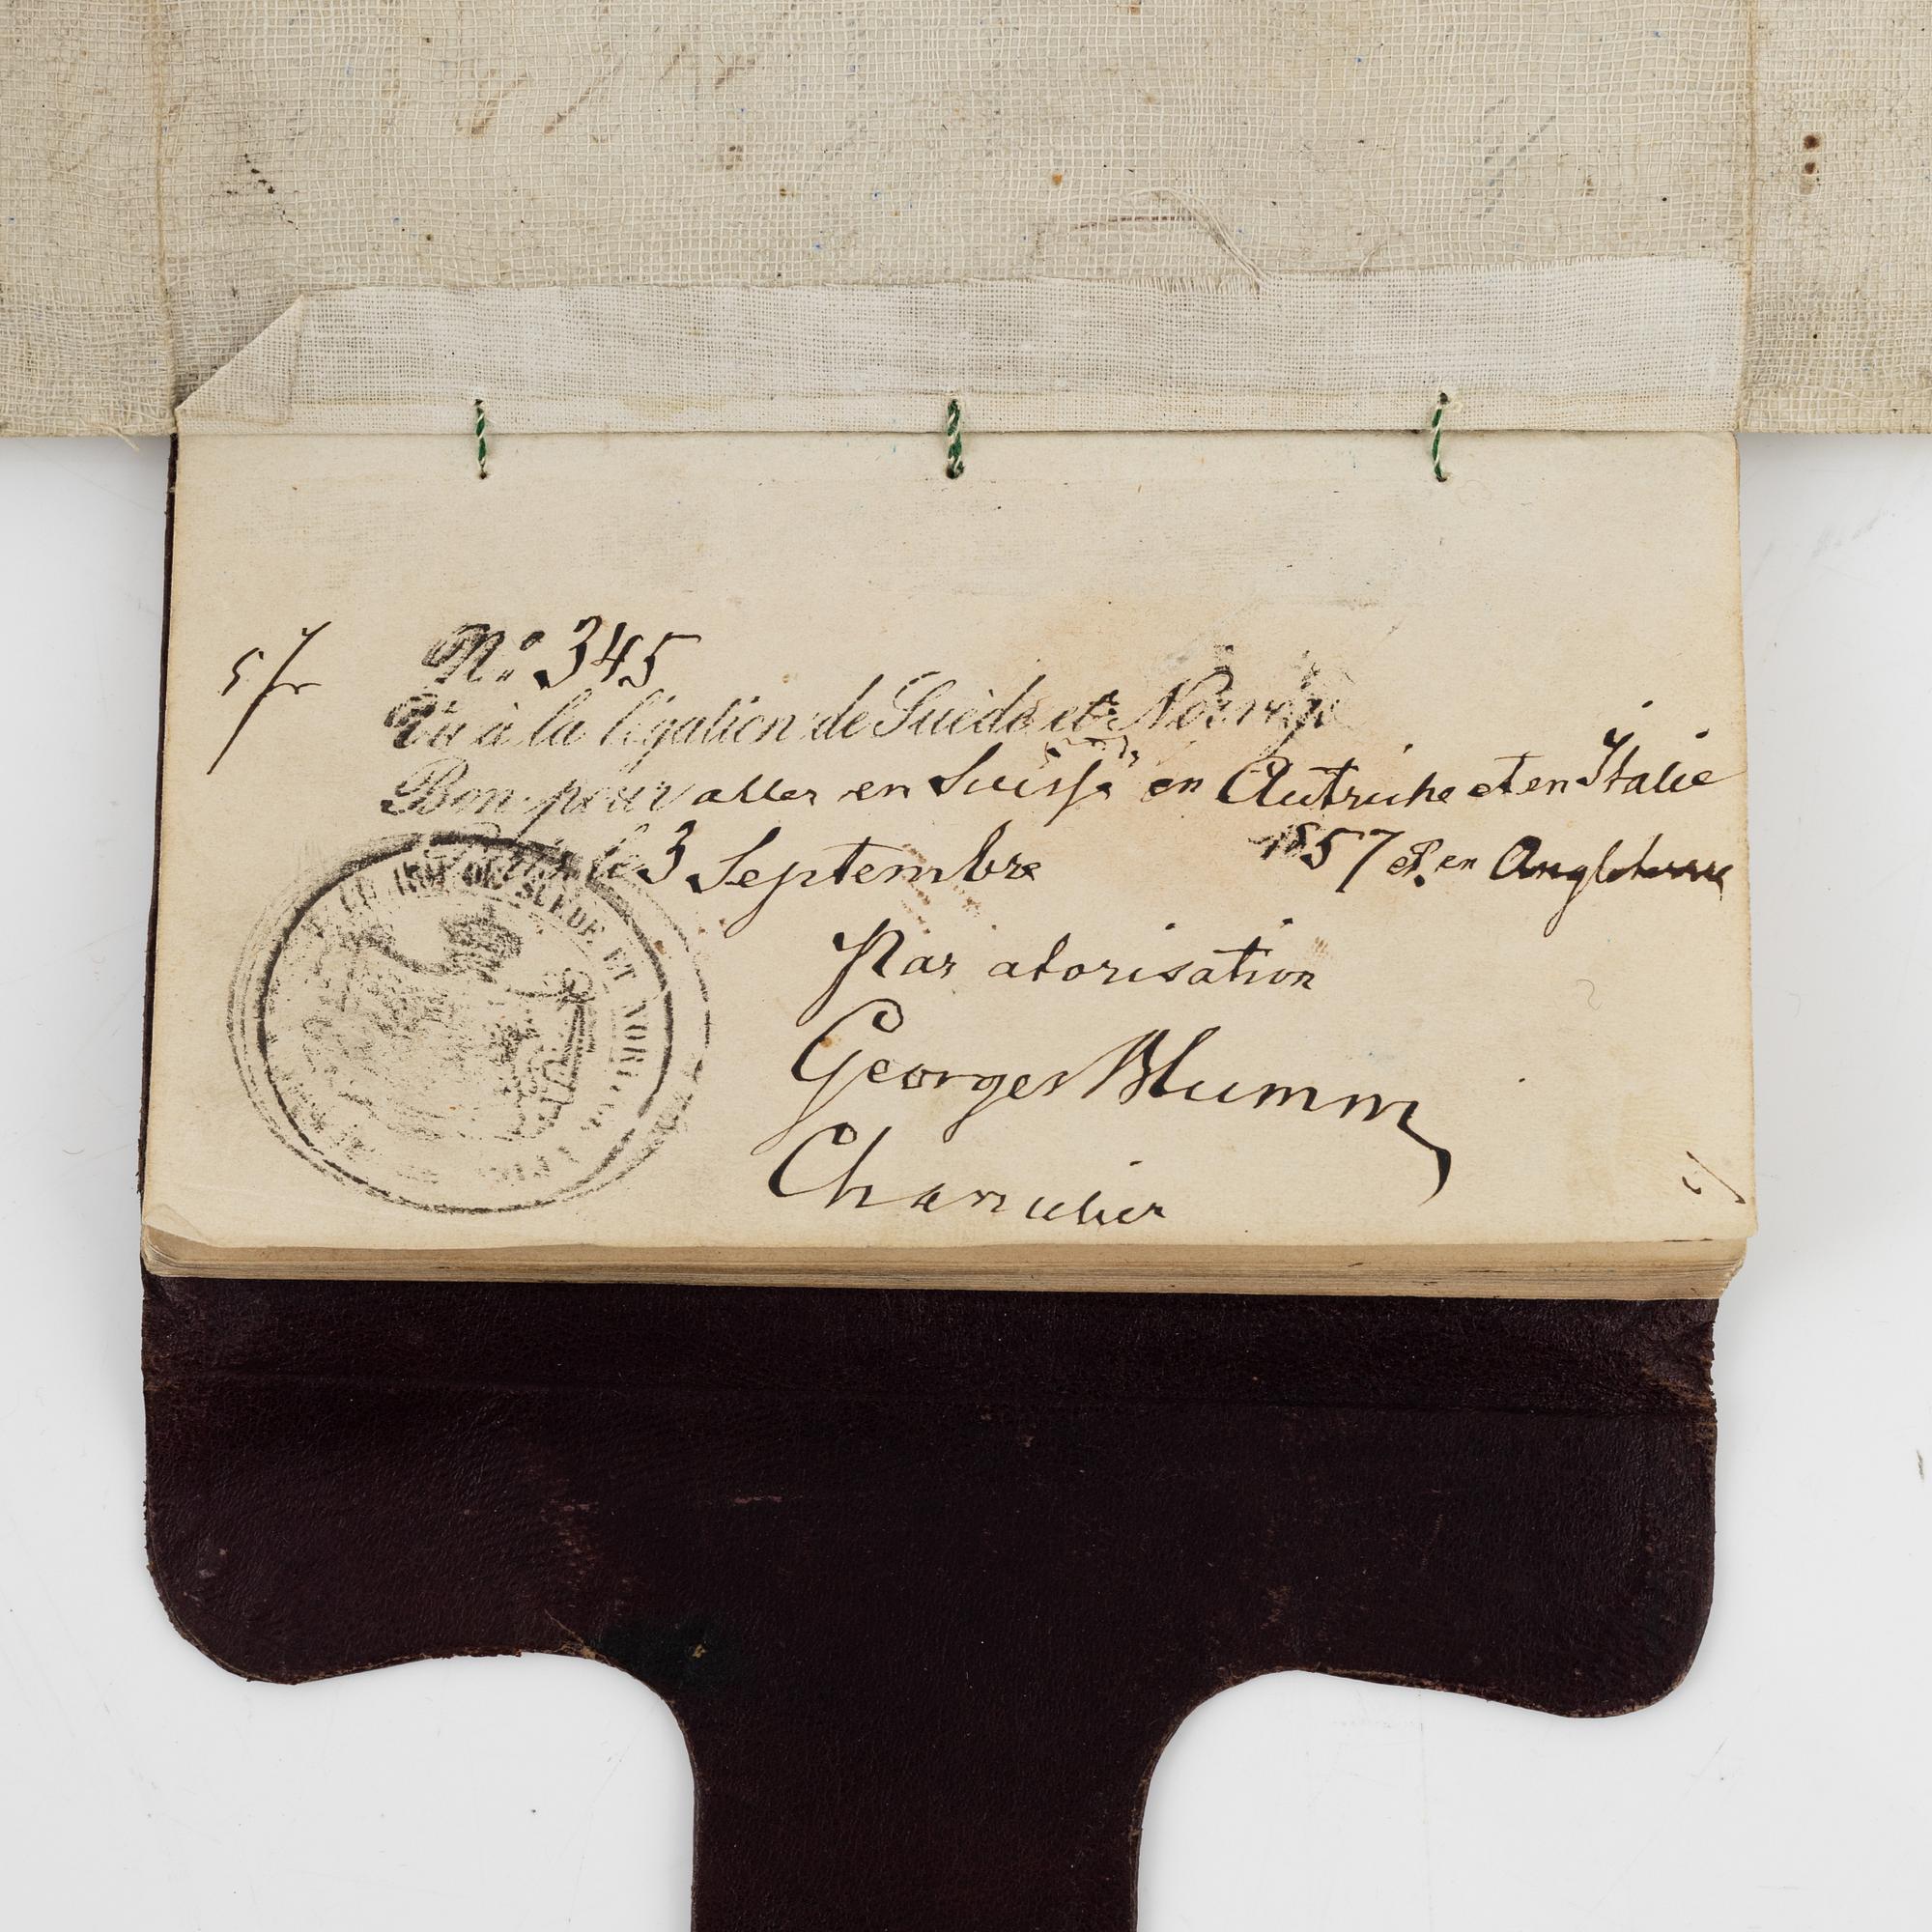 5 fr
No. 345
Vu à la légation de Suède et Norvège
Bon pour aller en Suisse en Autriche et en Italie
Paris le 3 Septembre 1857 et en Angleterre
Par atorisation
Georges Blumm
Chancelier
DE SUEDE ET NORVEGE